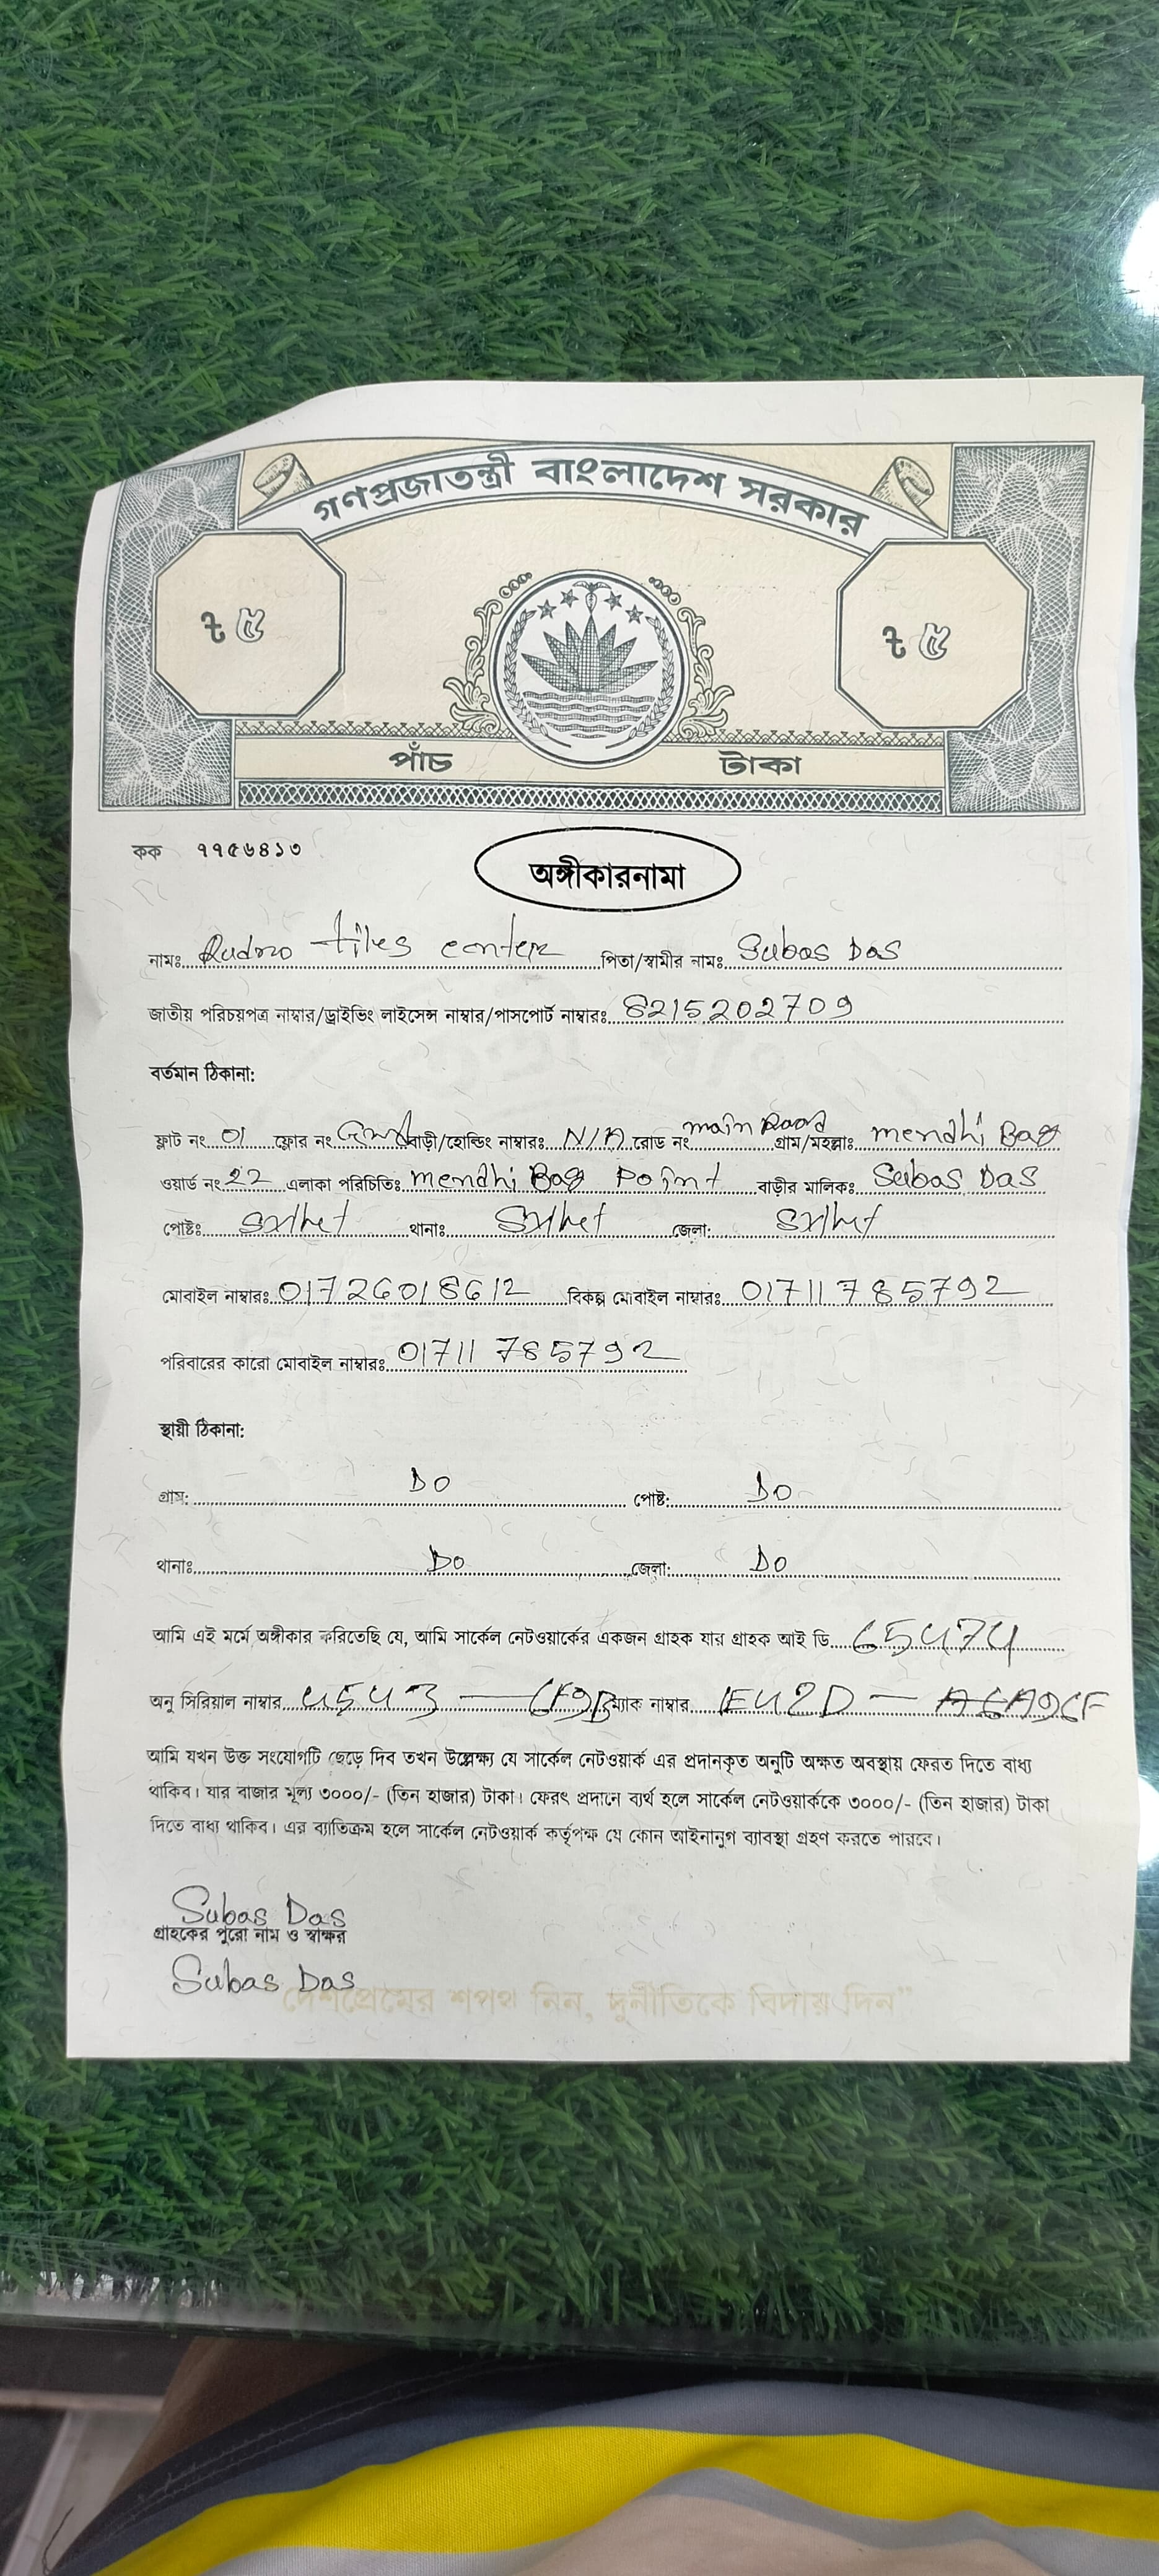 গণপ্রজাতন্ত্রী বাংলাদেশ সরকার
৳ ৫ ৳ ৫
পাঁচ টাকা
কক ৭৭৫৬৪১৩
অঙ্গীকারনামা
নামঃ Rudro tiles center পিতা/স্বামীর নামঃ Subas Das
জাতীয় পরিচয়পত্র নাম্বার/ড্রাইভিং লাইসেন্স নাম্বার/পাসপোর্ট নাম্বারঃ 8215202709
বর্তমান ঠিকানা:
ফ্লাট নং 01 ফ্লোর নং বাড়ী/হোল্ডিং নাম্বারঃ N/A রোড নং main Road গ্রাম/মহল্লাঃ mendhi Bag
ওয়ার্ড নং 22 এলাকা পরিচিতিঃ mendhi Bag Point বাড়ীর মালিকঃ Subas Das
পোষ্টঃ Sylhet থানাঃ Sylhet জেলা: Sylhet
মোবাইল নাম্বারঃ 01726018612 বিকল্প মোবাইল নাম্বারঃ 01711785792
পরিবারের কারো মোবাইল নাম্বারঃ 01711 785792
স্থায়ী ঠিকানা:
গ্রাম: DO পোষ্ট: DO
থানাঃ DO জেলা: DO
আমি এই মর্মে অঙ্গীকার করিতেছি যে, আমি সার্কেল নেটওয়ার্কের একজন গ্রাহক যার গ্রাহক আই ডি 65474
অনু সিরিয়াল নাম্বার 4543 — 6F9B ম্যাক নাম্বার E42D — A6A96F
আমি যখন উক্ত সংযোগটি ছেড়ে দিব তখন উল্লেক্ষ্য যে সার্কেল নেটওয়ার্ক এর প্রদানকৃত অনুটি অক্ষত অবস্থায় ফেরত দিতে বাধ্য
থাকিব। যার বাজার মূল্য ৩০০০/- (তিন হাজার) টাকা। ফেরৎ প্রদানে ব্যর্থ হলে সার্কেল নেটওয়ার্ককে ৩০০০/- (তিন হাজার) টাকা
দিতে বাধ্য থাকিব। এর ব্যাতিক্রম হলে সার্কেল নেটওয়ার্ক কর্তৃপক্ষ যে কোন আইনানুগ ব্যাবস্থা গ্রহণ করতে পারবে।
Subas Das
গ্রাহকের পুরো নাম ও স্বাক্ষর
Subas Das
দেশপ্রেমের শপথ নিন, দুর্নীতিকে বিদায় দিন"